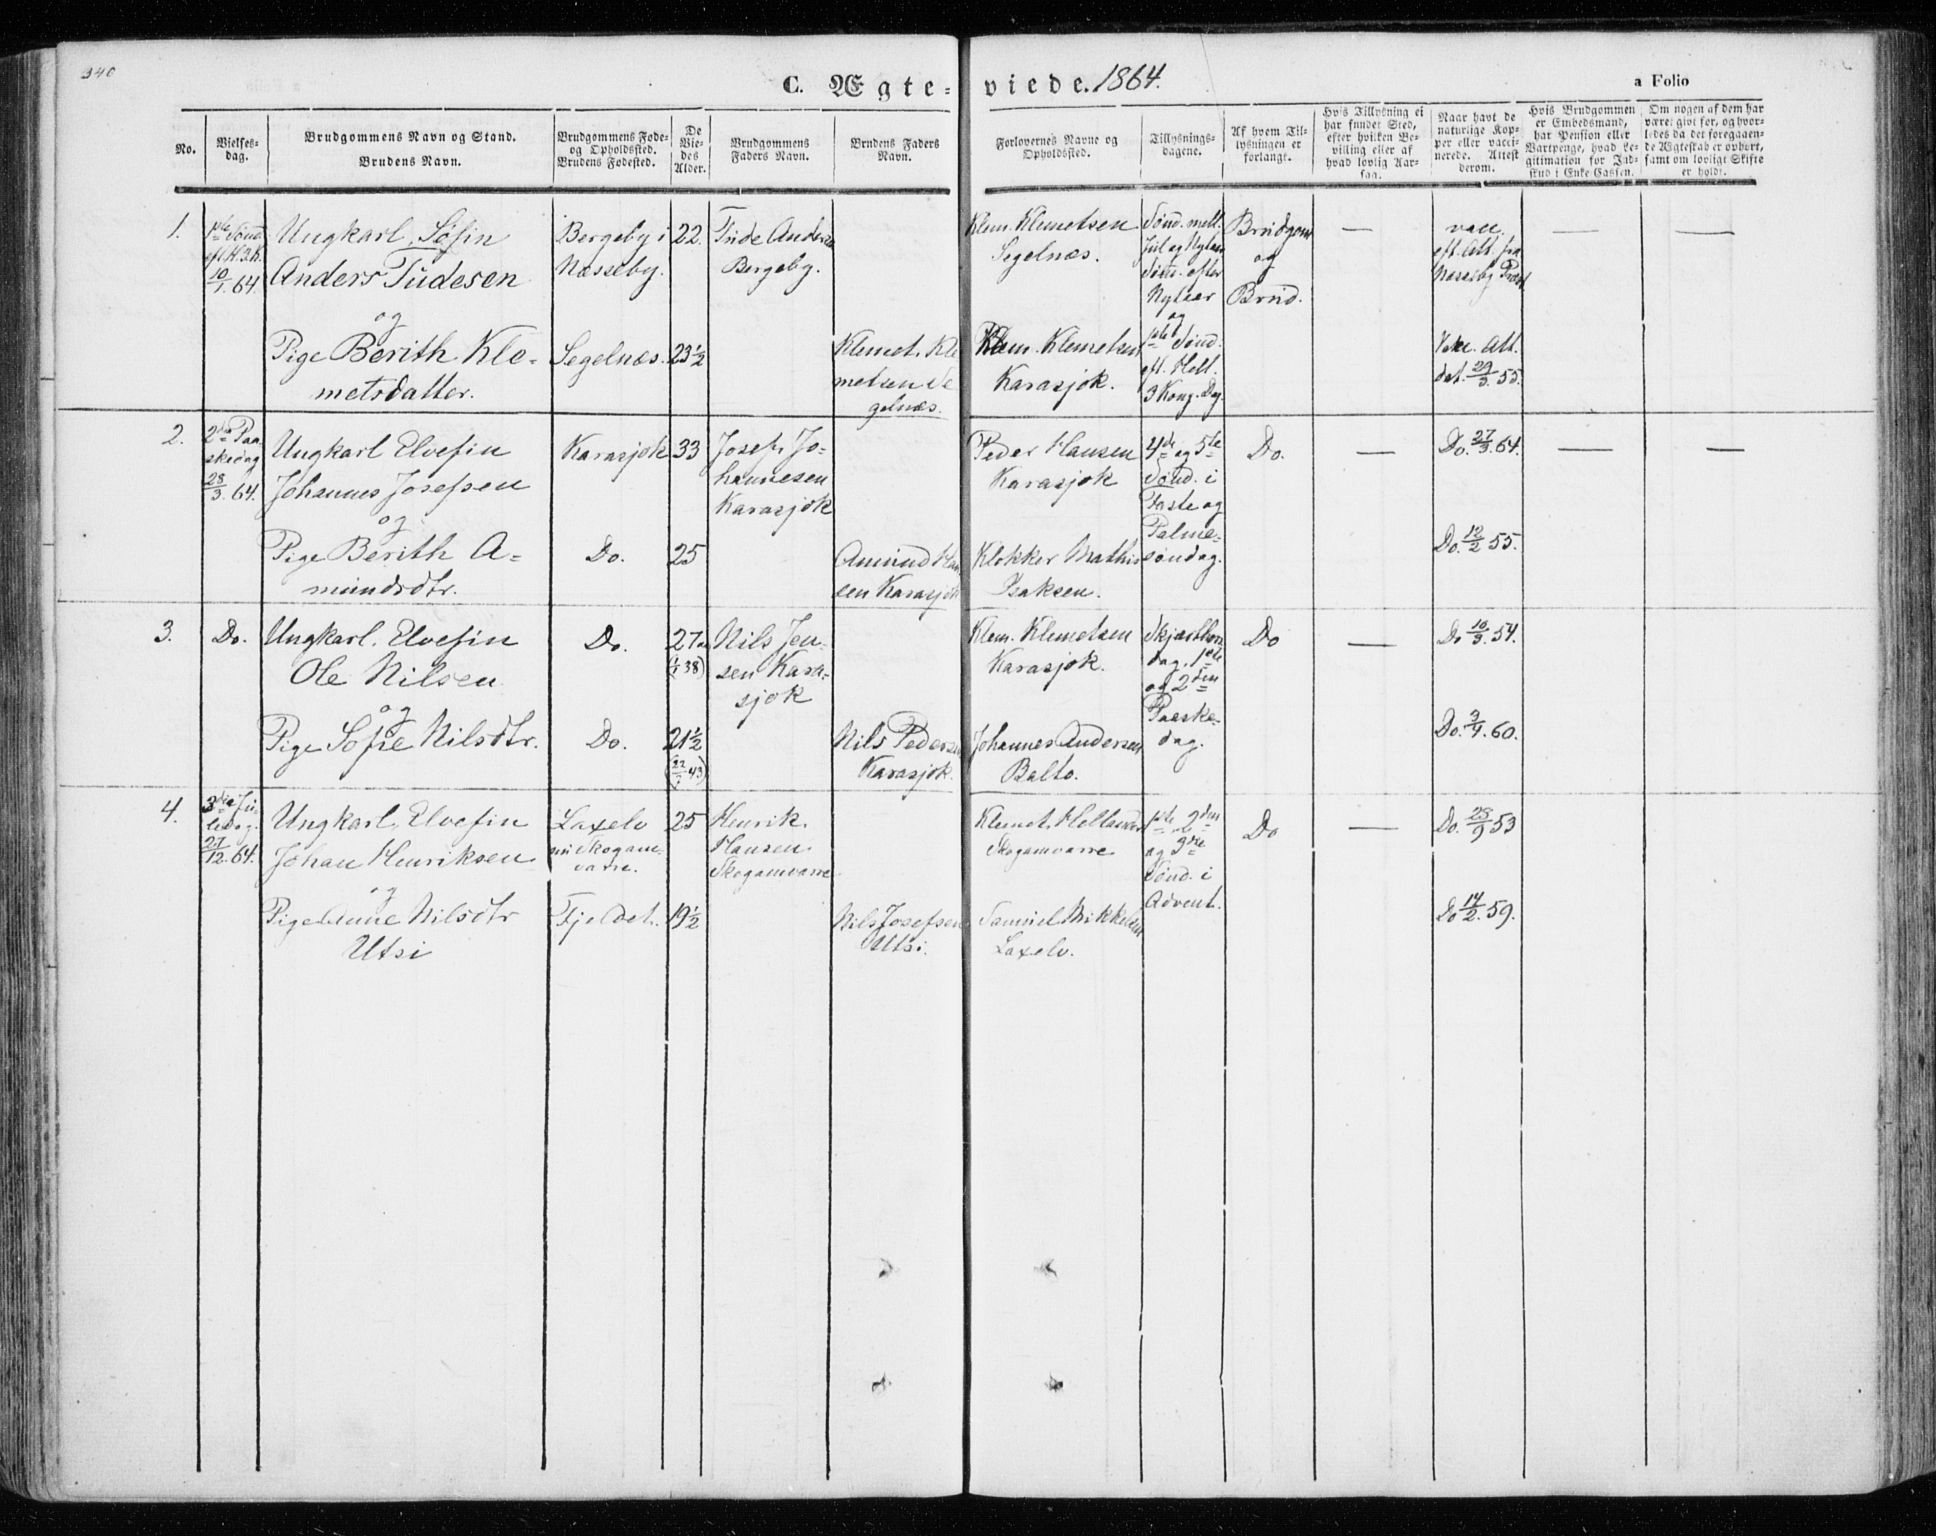 340
C. Ægte-viede. 1864.
a Folio
No.
Vielses-
dag.
Brudgommens Navn og Stand.
Brudens Navn.
Brudgommens Føde-
og Opholdssted.
Brudens Fødested.
De
Vie-
des
Alder.
Brudgommens
Faders Navn.
Brudens Faders
Navn.
Forlovernes Navne og
Opholdssted.
Tillysnings-
dagene.
Af hvem Til-
lysningen er
forlangt.
Hvis Tillysning ei
har fundet Sted,
efter hvilken Be-
villing eller af
hvad lovlig Aar-
sag.
Naar havt de
naturlige Kop-
per eller vacci-
nerede. Attest
derom.
Hvis Brudgommen
er Embedsmand,
har Pension eller
Vartpenge, hvad Le-
gitimation for Ind-
skud i Enke Cassen.
Om nogen af dem har
været givt før, og hvor-
ledes da det foregaaen-
de Ægteskab er ophørt,
samt om lovligt Skifte
er holdt.
1.
1ste Sønd.
eft. H.3.K.
10/1. 64.
Ungkarl, Søfin
Anders Tudesen
og
Pige Berith Kle-
metsdatter.
Bergeby i
Næsseby.
Segelnæs.
22.
23 1/2
Tude Andersen
Bergeby.
Klemet Kle
metsen Se
gelnæs.
Klem. Klemetsen
Segelnæs.
Klem. Klemetsen
Karasjok.
Sønd. mell.
Jul og Nytaar
Sønd. efter
Nytaar
og
1ste Sønd.
eft. Hell.
3 Kong. Dag
Brudgom
og
Brud.
—
vacc.
eft. Att. fra
Næsseby Præst
Vacc. Att.
dat. 29/3 55.
—
—
2.
2den Paa
skedag
28/3. 64.
Ungkarl Elvefin
Johannes Josefsen
og
Pige Berith A-
mundsdtr.
Karasjok
Do.
33
25
Josef Jo-
hannesen
Karasjok
Amund Han
sen Karasjok
Peder Hansen
Karasjok
Klokker Mathis
Isaksen.
4de og 5te
Sønd. i
Faste og
Palme-
søndag.
Do.
—
Do. 27/3. 64.
Do. 12/2 55.
—
—
3.
Do.
Ungkarl. Elvefin
Ole Nilsen
og
Pige Sofie Nilsdtr.
Do.
Do.
27
21 1/2
Nils Jen-
sen Kara-
sjok
Nils Pedersen
Karasjok.
Klem. Klemetsen
Karasjok.
Johannes Andersen
Balto.
Skjærthors
dag, 1ste
og 2den
Paaske-
dag.
Do
—
Do 10/3. 54.
Do. 3/4. 60.
4.
3die Ju-
ledag.
27/12. 64.
Ungkarl, Elvefin
Johan Henriksen
og
Pige Anne Nilsdtr
Utsi
Laxelv
Skogam-
varre.
Fjeldet.
25
19 1/2
Henrik
Hansen
Skogamvarre
Nils Josefsen
Utsi.
Klemet Hellander
Skogamvarre
Samuel Mikkelsen
Laxelv.
1ste 2den
og 3die
Sønd. i
Advent.
Do
—
Do. 25/9 53
Do 14/2. 59.